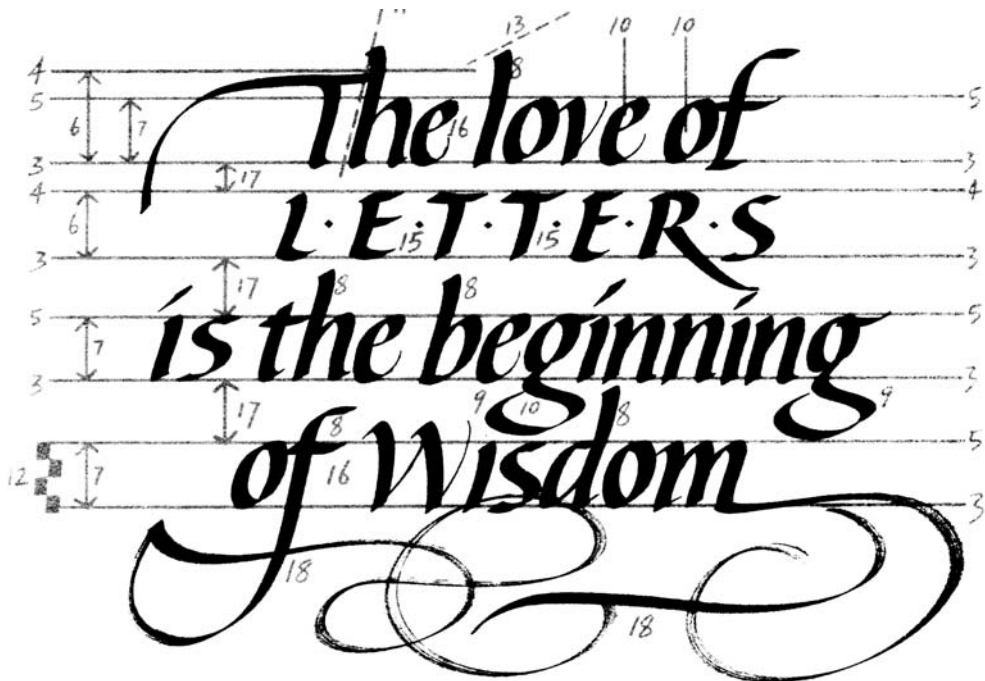 13 10 10
4 8
5 5
6 7 The love of 16
3 3
17
4 4
6 L·E·T·T·E·R·S
15 15
3 3
17 8 8
5 5
7 is the beginning
3
17 9 10 8 9
5 8 5
12 7 of Wisdom
16
3
18
18